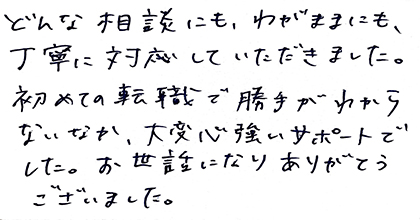 どんな相談にも、わがままにも、
丁寧に対応していただきました。
初めての転職で勝手がわから
ないなか、大変心強いサポートで
した。お世話になりありがとう
ございました。